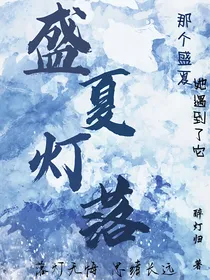 盛夏灯落
那个盛夏
她遇到了它
落灯无悔 思绪长远
醉灯归 著